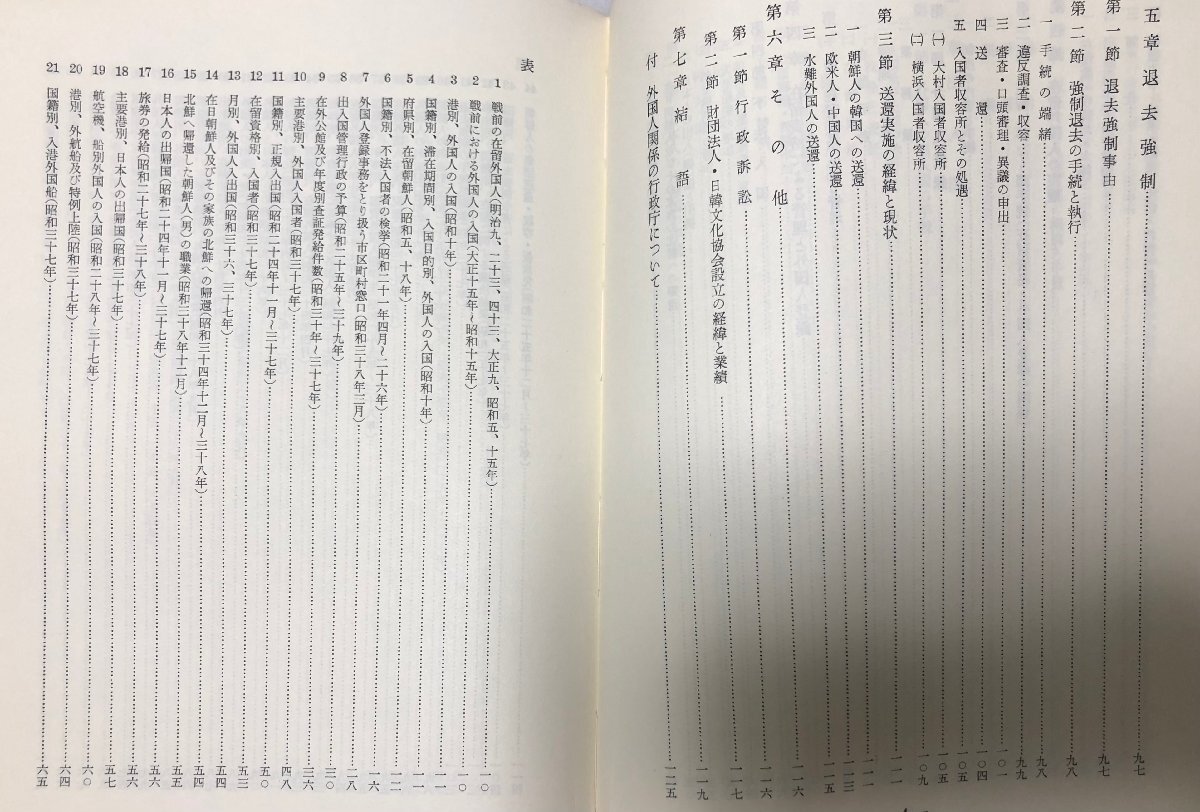 五章 退去強制……九七
第一節 退去強制事由……九七
第二節 強制退去の手続と執行……九八
一 手続の端緒……九八
二 違反調査・収容……九九
三 審査・口頭審理・異議の申出……一〇一
四 送還……一〇四
五 入国者収容所とその処遇……一〇五
㈠ 大村入国者収容所……一〇五
㈡ 横浜入国者収容所……一〇九
第三節 送還実施の経緯と現状……一一一
一 朝鮮人の韓国への送還……一一一
二 欧米人・中国人の送還……一一三
三 水難外国人の送還……一一五
第六章 その他……一一六
第一節 行政訴訟……一一六
第二節 財団法人・日韓文化協会設立の経緯と業績……一一九
第七章 結語……
付 外国人関係の行政庁について……一二五
表
1 戦前の在留外国人(明治九、二十三、四十三、大正九、昭和五、十五年)……一〇
2 戦前における外国人の入国(大正十五年~昭和十五年)……一〇
3 港別、外国人の入国(昭和十年)……一〇
4 国籍別、滞在期間別、入国目的別、外国人の入国(昭和十年)……一一
5 府県別、在留朝鮮人(昭和五、十八年)……一二
6 国籍別、不法入国者の検挙(昭和二十一年四月~二十六年)……一六
7 外国人登録事務をとり扱う市区町村窓口(昭和三十八年三月)……二八
8 出入国管理行政の予算(昭和二十五年~三十九年)……三〇
9 在外公館及び年度別査証発給件数(昭和三十年~三十七年)……三六
10 主要港別、外国人入国者(昭和三十七年)……四八
11 国籍別、正規入出国(昭和二十四年十一月~三十七年)……五〇
12 在留資格別、入国者(昭和三十七年)……五三
13 月別、外国人入出国(昭和三十六、三十七年)……五四
14 在日朝鮮人及びその家族の北鮮への帰還(昭和三十四年十二月~三十八年)……五四
15 北鮮へ帰還した朝鮮人(男)の職業(昭和三十八年十二月)……五五
16 日本人の出帰国(昭和二十四年十一月~三十七年)……五六
17 旅券の発給(昭和二十七年~三十八年)……五六
18 主要港別、日本人の出帰国(昭和三十七年)……五七
19 航空機、船別外国人の入国(昭和二十八年~三十七年)……六〇
20 港別、外航船及び特例上陸(昭和三十七年)……六四
21 国籍別、入港外国船(昭和三十七年)……六五